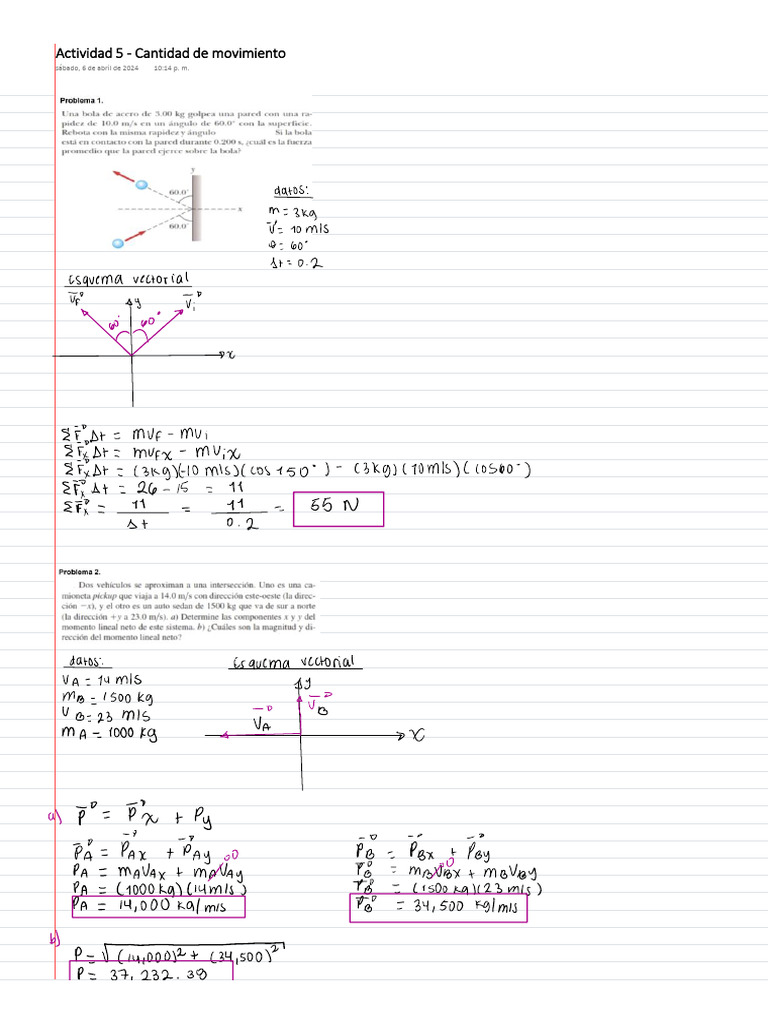 Actividad 5 - Cantidad de movimiento
sábado, 6 de abril de 2024 10:14 p. m.
Problema 1.
Una bola de acero de 3.00 kg golpea una pared con una ra-
pidez de 10.0 m/s en un ángulo de 60.0° con la superficie.
Rebota con la misma rapidez y ángulo Si la bola
está en contacto con la pared durante 0.200 s, ¿cuál es la fuerza
promedio que la pared ejerce sobre la bola?
y
60.0°
x
60.0°
datos:
m = 3kg
V = 10 m/s
θ = 60°
Δt = 0.2
Esquema vectorial
Vf y Vi
60° 60°
x
ΣF Δt = mvf - mvi
ΣFx Δt = mvfx - mvix
ΣFx Δt = (3kg)(-10 m/s)(cos 150°) - (3kg)(10m/s)(cos60°)
ΣFx Δt = 26 - 15 = 11
ΣFx = 11 / Δt = 11 / 0.2 = 55 N
Problema 2.
Dos vehículos se aproximan a una intersección. Uno es una ca-
mioneta pickup que viaja a 14.0 m/s con dirección este-oeste (la direc-
ción −x), y el otro es un auto sedan de 1500 kg que va de sur a norte
(la dirección +y a 23.0 m/s). a) Determine las componentes x y y del
momento lineal neto de este sistema. b) ¿Cuáles son la magnitud y di-
rección del momento lineal neto?
datos:
VA = 14 m/s
mB = 1500 kg
VB = 23 m/s
mA = 1000 kg
Esquema vectorial
y
VB
VA
x
a) P = Px + Py
PA = PAx + PAy
PA = mAVAx + mAVAy 0
PA = (1000kg)(14m/s)
PA = 14,000 kg/m/s
PB = PBx + PBy
PB = mBVBx 0 + mBVBy
PB = (1500 kg)(23 m/s)
PB = 34,500 kg/m/s
b)
P = √(14,000)² + (34,500)²
P = 37,232.38